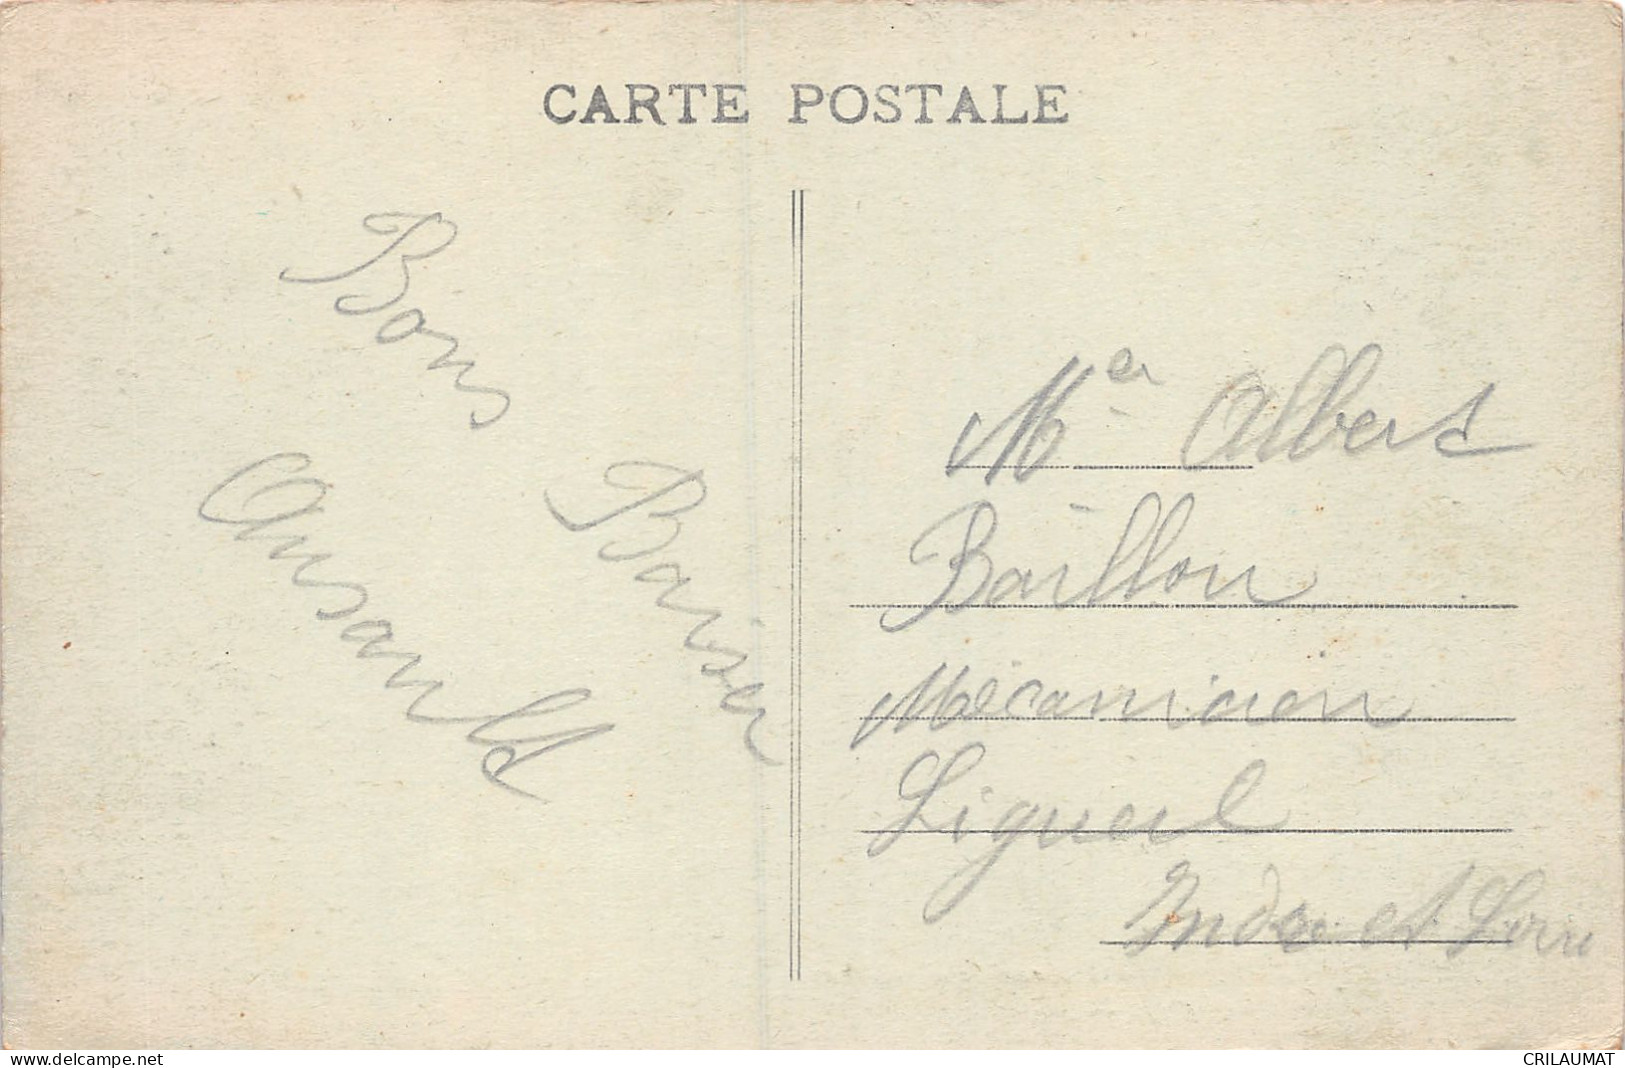 CARTE POSTALE
Bons
Baiser
Ansault
Mer Albert
Baillon
Mécanicien
Ligueil
Indre et Loire
www.delcampe.net
CRILAUMAT